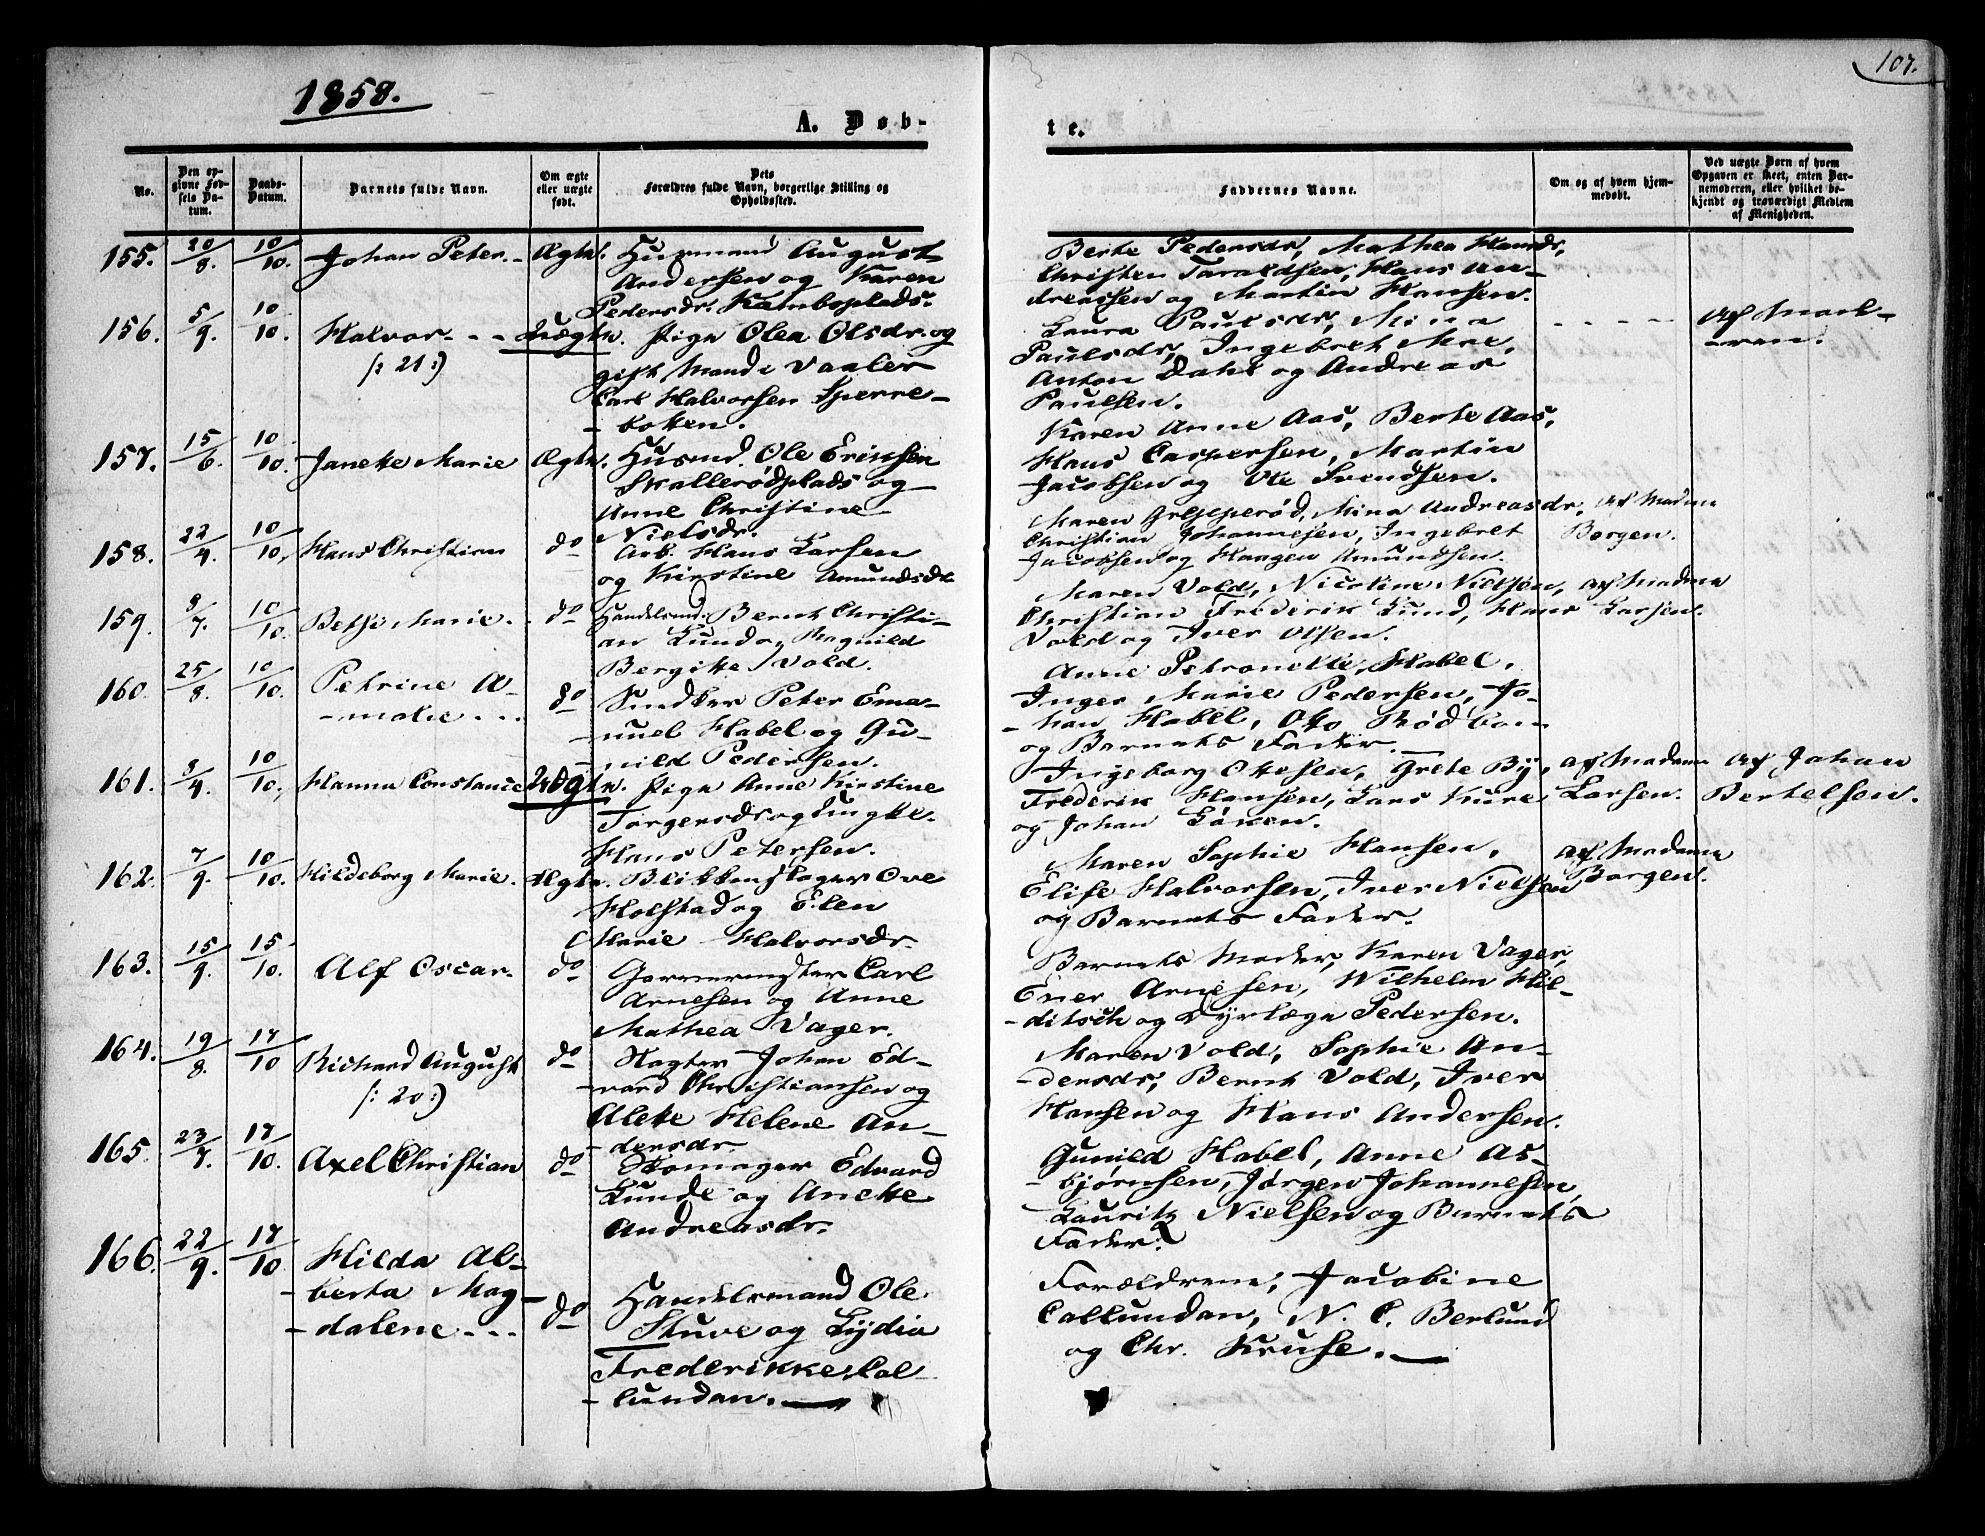 1858.
107.
A. Døb-
te.
No.
Den op-
givne Fød-
sels Da-
tum.
Daabs-
Datum.
Barnets fulde Navn.
Om ægte
eller uægte
født.
Dets
Forældres fulde Navn, borgerlige Stilling og
Opholdssted.
Faddernes Navne.
Om og af hvem hjem-
medøbt.
Ved uægte Børn af hvem
Opgaven er skeet, enten Bar-
nemoderen, eller hvilket be-
kjendt og troværdigt Medlem
af Menigheden.
155. 20/8. 10/10. Johan Peter. Ægte. Husmand August
Andersen og Karen
Pedersdr. Kambsplads.
Berte Pedersdr, Mathea Hansdr,
Christen Taraldsen, Hans An-
dreassen og Martin Hansen.
156. 5/9. 10/10. Halvor - - - Uægte. Pige Olea Olsdr. og
(: 21:)
gift Mand i Vaaler
Carl Halvorsen Sperre-
- botten.
Laura Paulsdr, Mina
Paulsdr, Ingebret Moe,
Anton Dahl og Andreas
Paulsen.
- - - - -
Af Mod-
eren.
157. 15/6. 10/10. Janette Marie Ægte. Husmd. Ole Eriksen
Skallerødplads og
Anne Christine
Nielsdr.
Karen Anne Aas, Berte Aas,
Hans Caspersen, Martin
Jacobsen og Ole Svendsen.
158. 22/4. 10/10. Hans Christian do Arb. Hans Larsen
og Kirstine Amundsdr
Maren Grepperød, Mina Andreasdr,
Christian Johannesen, Ingebret
Jacobsen og Haagen Amundsen.
Af Madme
Borgen.
159. 3/7. 10/10. Betsi Marie. do Handelsmd. Bernt Christi-
an Lund og Magnild
Bergitte Vold.
Maren Vold, Nicoline Nielsen,
Christian Frederik Lund, Hans
Vold og Iver Olsen.
Af Madme
Larsen.
160. 25/8. 10/10. Petrine A-
- malie - - - do Snedker Peter Ema-
- nuel Habel og Gu-
- nild Pedersen.
Anne Petronelle Habel,
Inger Marie Pedersen, Jo-
- han Habel, Otto Rød
og Barnets Fader.
161. 3/4. 10/10. Hanna Constance Uægte. Pige Anne Kirstine
Torgersdr og Ungke.
Hans Petersen.
Ingeborg Ottesen, Grete By,
Frederik Hansen, Lars Kure
og Johan
Af Madme
Larsen.
Af Johan
Bertelsen.
162. 7/9. 10/10. Hildeborg Marie. Ægte. Blikkenslager Ove
Holstad og Elen
Marie Halvorsdr.
Maren Sophie Hansen,
Elise Halvorsen, Iver Nielsen
og Barnets Fader.
Af Madame
Borgen.
163. 15/9. 15/10. Alf Oscar. do Garvermester Carl
Arnesen og Anne
Mathea Vager.
Barnets Moder, Karen Vager,
Ener Arnesen, Wilhelm Hil-
- ditsch og Dyrlæge Pedersen.
164. 19/8. 17/10 Richard August
(: 20:)
do Johan Ed-
- vard Christiansen og
Alette Helene An-
- dersdr.
Maren Vold, Sophie An-
- dersdr, Bernt Vold, Iver
Hansen og Hans Andersen.
165. 23/7. 17/10. Axel Christian do Skomager Edvard
Lunde og Anette
Andreasdr.
Gunild Habel, Anne As-
- bjørnsen, Jørgen Johannesen,
Lauritz Nielsen og Barnets
Fader.
166. 22/9. 17/10. Hilda Al-
- berta Mag-
- dalene - - -
do Handelsmand Ole
Stuve og Lydia
Frederikke Cal-
- lundan.
Forældrene, Jacobine
Callundan, N. C. Berlund
og Chr. Kruse.